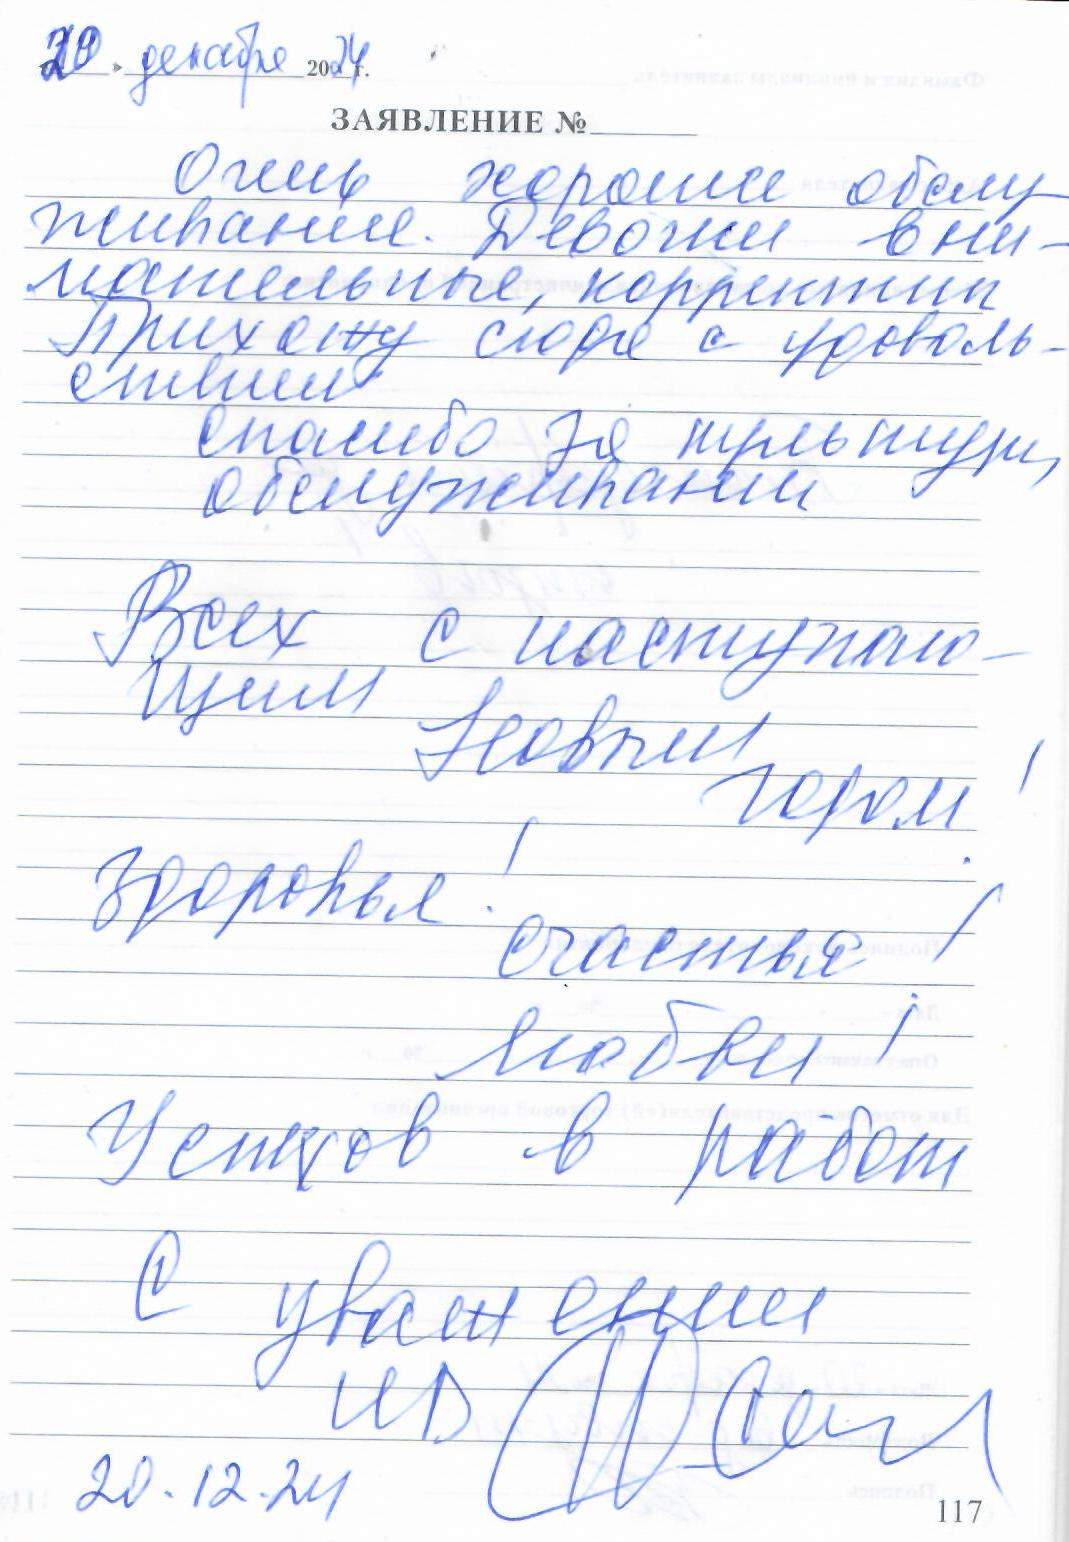 20 декабря 2024 г.
ЗАЯВЛЕНИЕ №
Очень хорошее обслу
живание. Девочки вни-
мательные, корректные
Прихожу сюда с удоволь-
ствием
Спасибо за культурн,
обслуживание
Всех с наступаю-
щим
Новым
годом!
Здоровья!
Счастья!
Любви!
Успехов в работе
С уважением
20.12.24
117